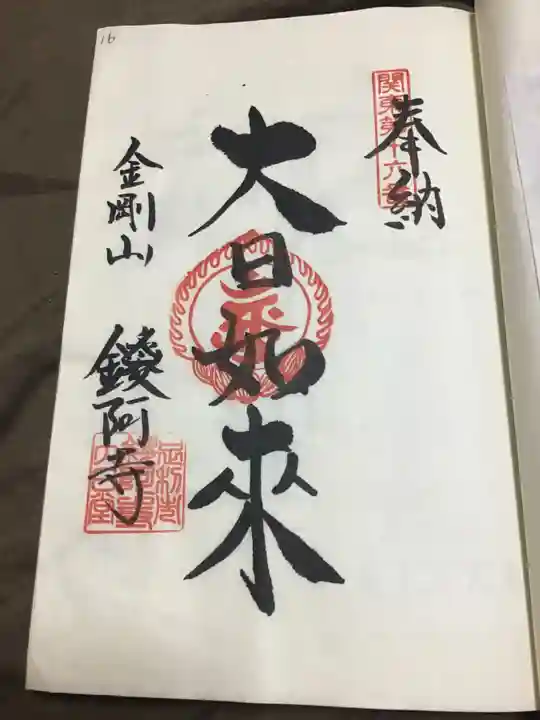 16
奉納
関東第十六番
大日如來
金剛山 鑁阿寺